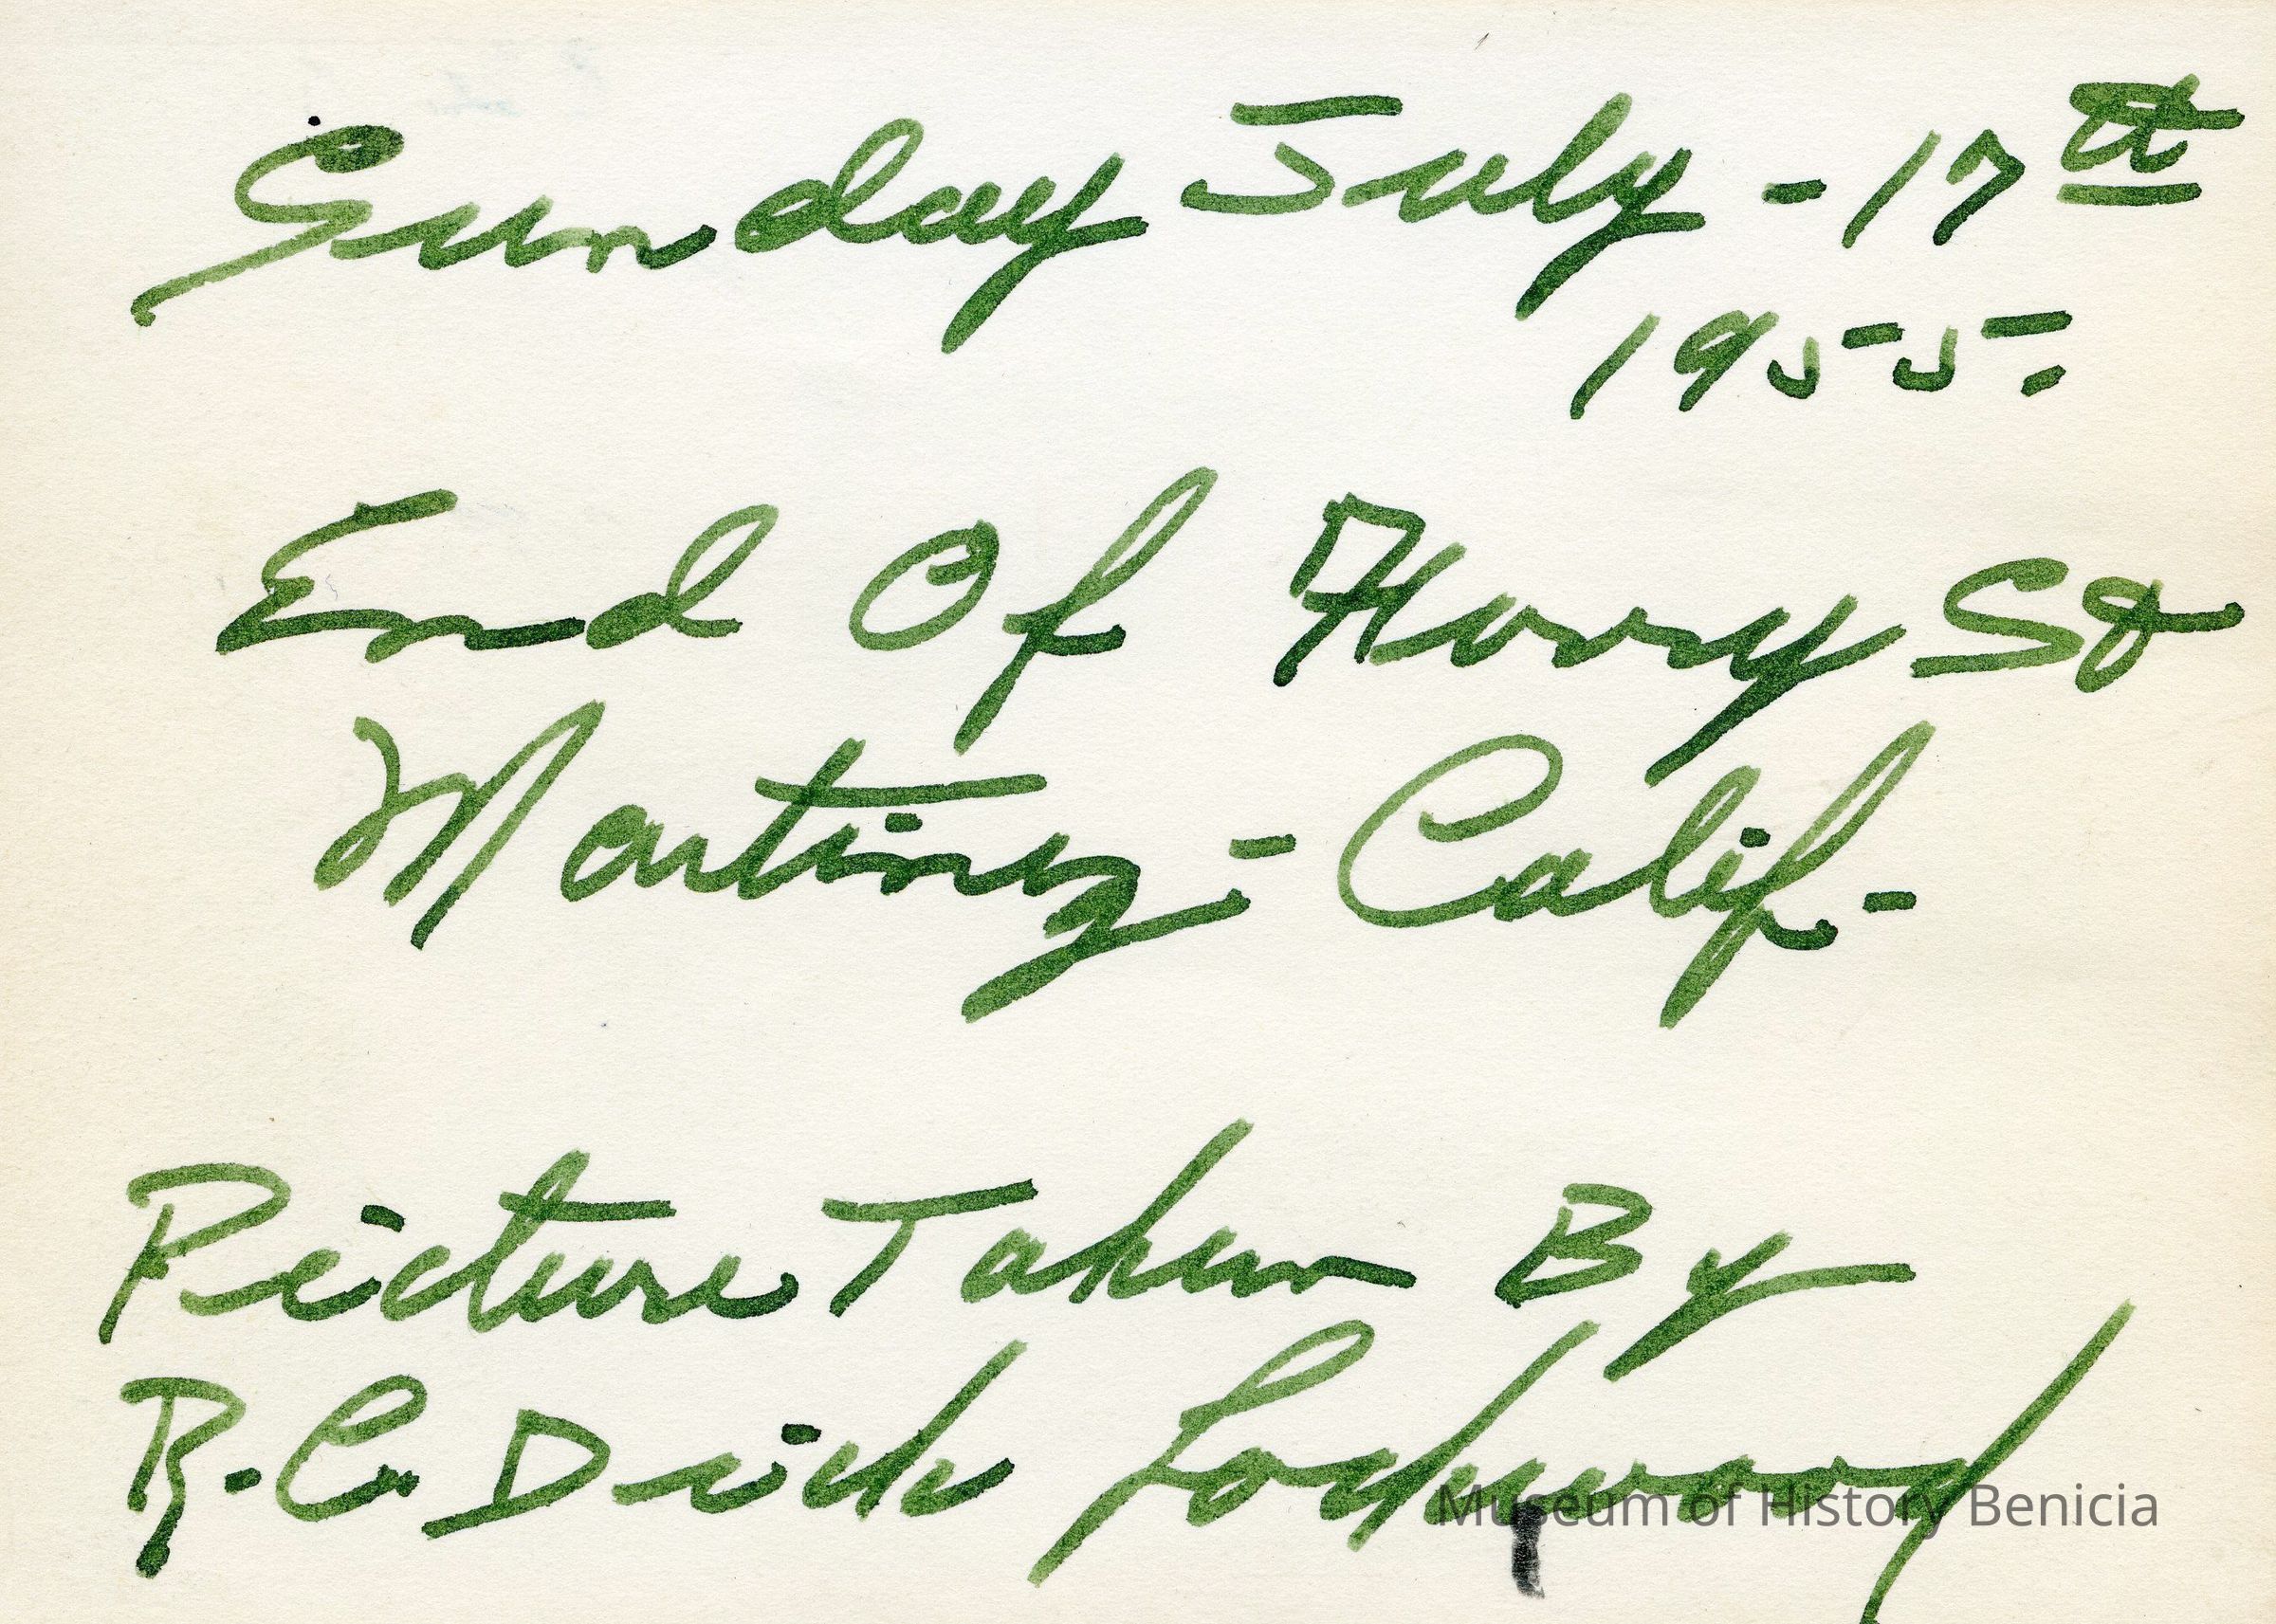 Sunday July - 17th
1955.
End Of Ferry St
Martinez - Calif. -
Picture Taken By
R. C. Dick Lockwood
Museum of History Benicia